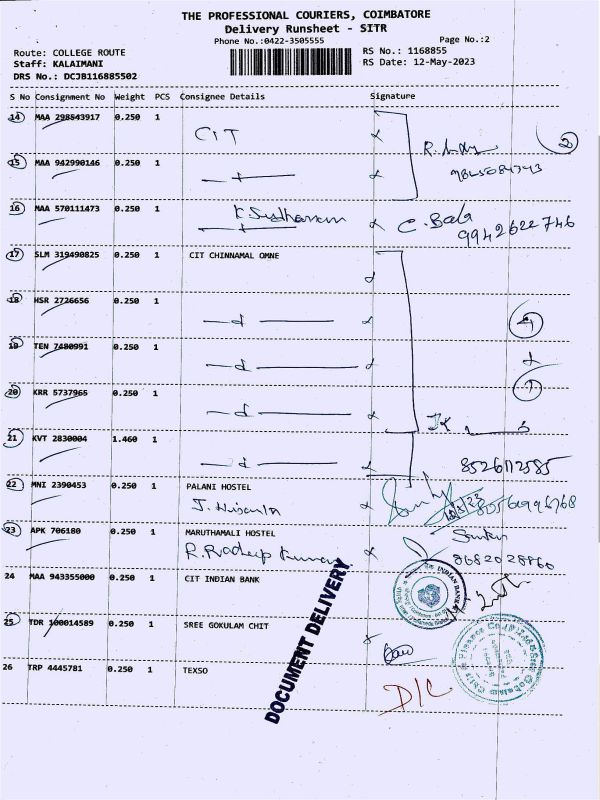 THE PROFESSIONAL COURIERS, COIMBATORE
Delivery Runsheet - SITR
Phone No.:0422-3505555
Page No.:2
Route: COLLEGE ROUTE
RS No.: 1168855
Staff: KALAIMANI
RS Date: 12-May-2023
DRS No.: DCJB116885502
S No Consignment No Weight PCS Consignee Details Signature
14 MAA 298543917 0.250 1 CIT
15 MAA 942990146 0.250 1
16 MAA 570111473 0.250 1 C. Bala
9942622746
17 SLM 319490825 0.250 1 CIT CHINNAMAL OMNE
18 HSR 2726656 0.250 1
19 TEN 7480991 0.250 1
20 KRR 5737965 0.250 1
21 KVT 2830004 1.460 1
8526112585
22 MNI 2390453 0.250 1 PALANI HOSTEL
23 APK 706180 0.250 1 MARUTHAMALI HOSTEL
R. Pradeep Kumar
8682028860
24 MAA 943355000 0.250 1 CIT INDIAN BANK
25 TDR 100014589 0.250 1 SREE GOKULAM CHIT
26 TRP 4445781 0.250 1 TEXSO
D/C
DOCUMENT DELIVERY
INDIAN BANK